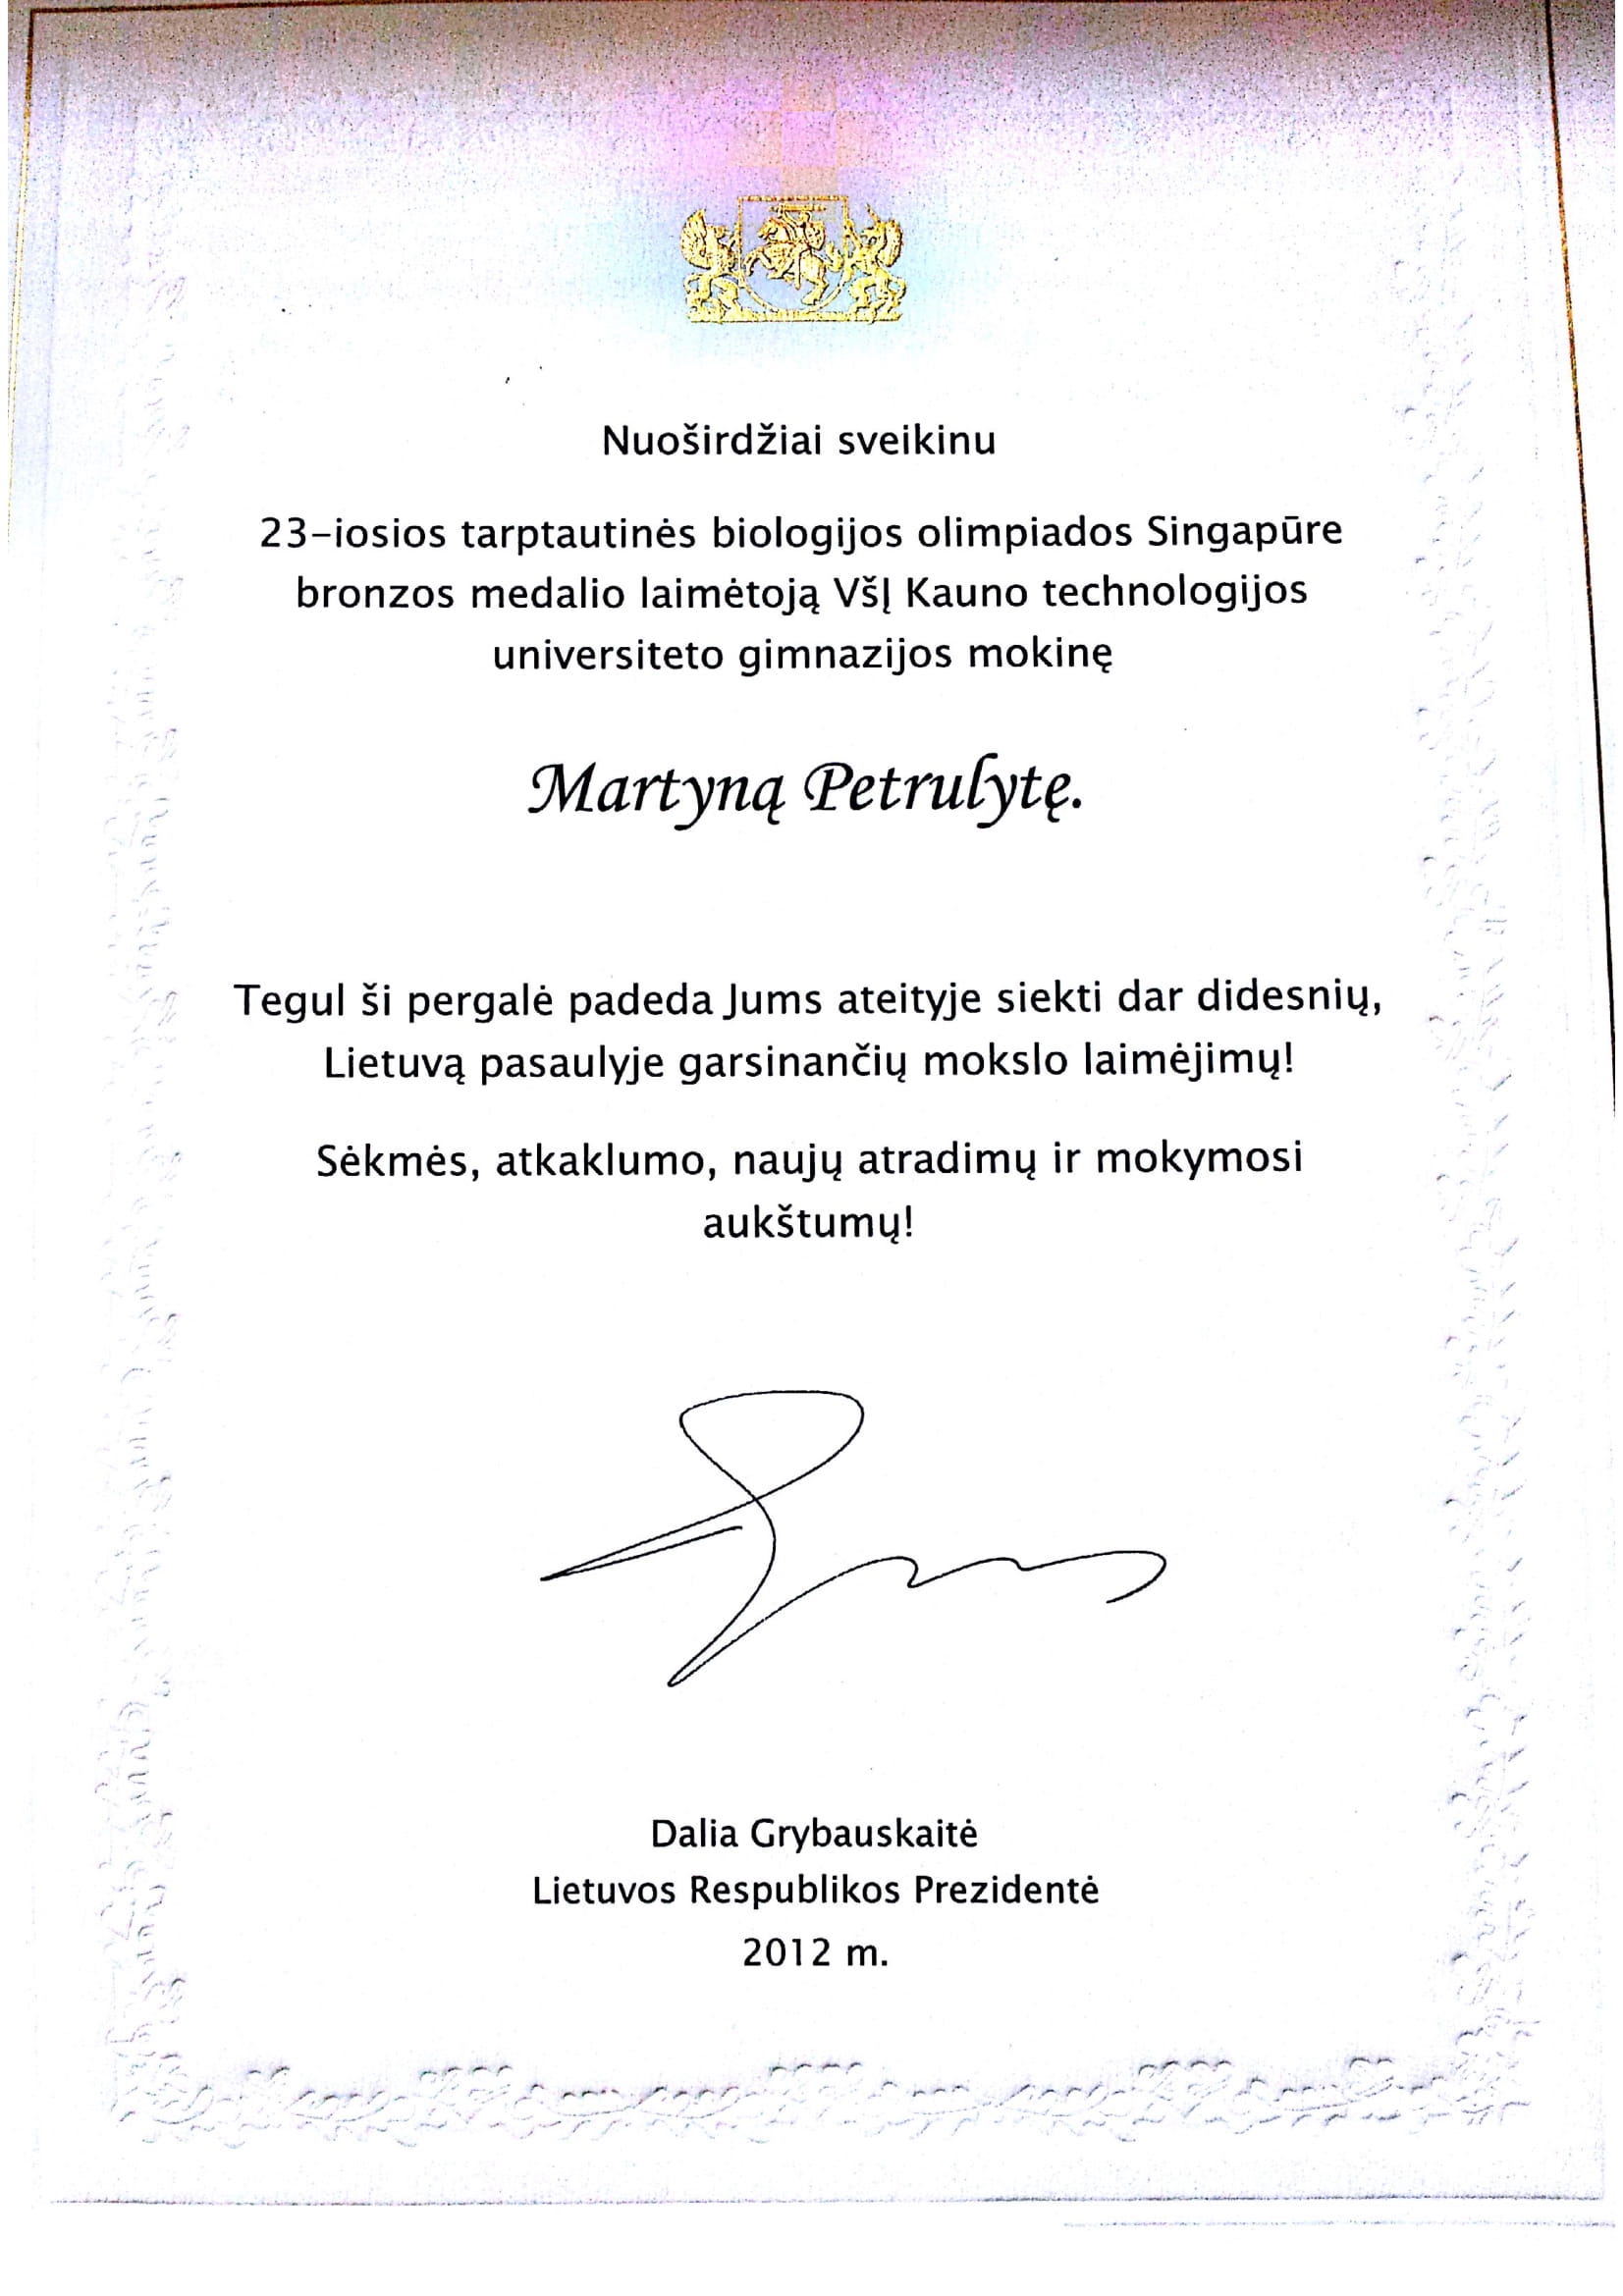 Nuoširdžiai sveikinu
23-iosios tarptautinės biologijos olimpiados Singapūre
bronzos medalio laimėtoją VšĮ Kauno technologijos
universiteto gimnazijos mokinę
Martyną Petrulytę.
Tegul ši pergalė padeda Jums ateityje siekti dar didesnių,
Lietuvą pasaulyje garsinančių mokslo laimėjimų!
Sėkmės, atkaklumo, naujų atradimų ir mokymosi
aukštumų!
Dalia Grybauskaitė
Lietuvos Respublikos Prezidentė
2012 m.